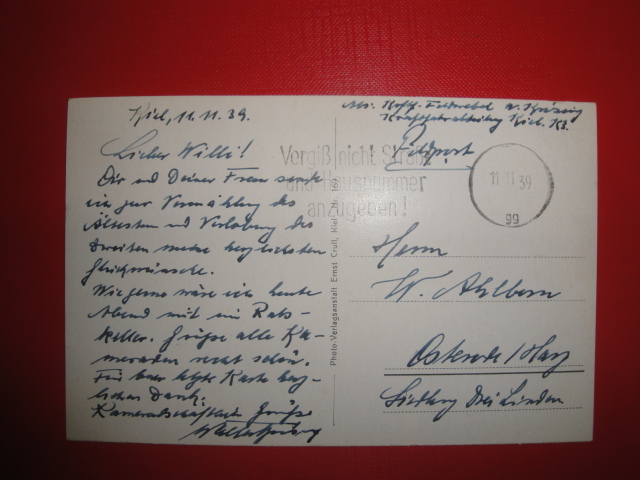 Kiel, 11.11.39.
Lieber Willi!
Dir und Deiner Frau sende
ich zur Vermählung des
Ältesten und Verlobung des
Zweiten meine herzlichsten
Glückwünsche.
Wie gerne wäre ich heute
Abend mit im Rats-
keller. Grüsse alle Ka-
meraden recht schön.
Für Eure letzte Karte herz-
lichen Dank.
Kameradschaftliche Grüße
Photo-Verlagsanstalt Ernst Crull, Kiel
Abs. Feldwebel
Kiel. K3.
Feldpost
Vergiß nicht Straße
und Hausnummer
anzugeben!
11 11 39
gg
Herrn
W. Ahlborn
Osterode/Harz
Siedlung Drei Linden